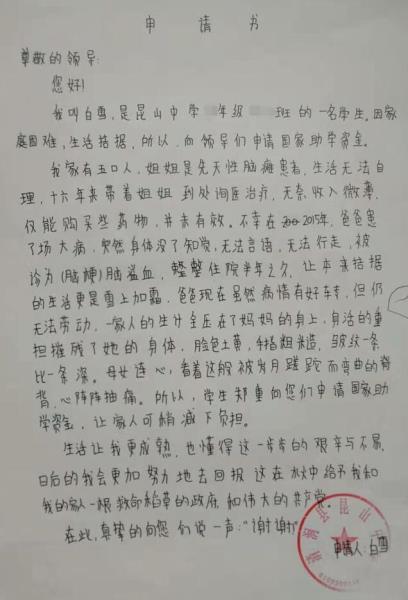 申 请 书
尊敬的领导:
您好!
我叫白雪,是昆山中学 年级 班的一名学生。因家
庭困难,生活拮据,所以,向领导们申请国家助学资金。
我家有五口人,姐姐是先天性脑瘫患者,生活无法自
理,十六年来带着姐姐到处询医治疗,无奈收入微薄,
仅能购买些药物,并未有效。不幸在 2015年,爸爸患
了场大病,突然身体没了知觉,无法言语,无法行走,被
诊为(脑梗)脑溢血,整整住院半年之久,让本来拮据
的生活更是雪上加霜,爸爸现在虽然病情有好转,但仍
无法劳动,一家人的生计全压在了妈妈的身上,生活的重
担摧残了她的身体,脸色土黄,手指粗糙,皱纹一条
比一条深。母女连心,看着这般被岁月蹉跎而弯曲的脊
背,心阵阵抽痛。所以,学生郑重向您们申请国家助
学资金,让家人可稍减下负担。
生活让我更成熟,也懂得这一步步的艰辛与不易,
日后的我会更加努力地去回报这在水火中给予我和
我的家人一根救命稻草的政府和伟大的共产党。
在此,真挚的向您们说一声:“谢谢”
申请人:白雪
昆山